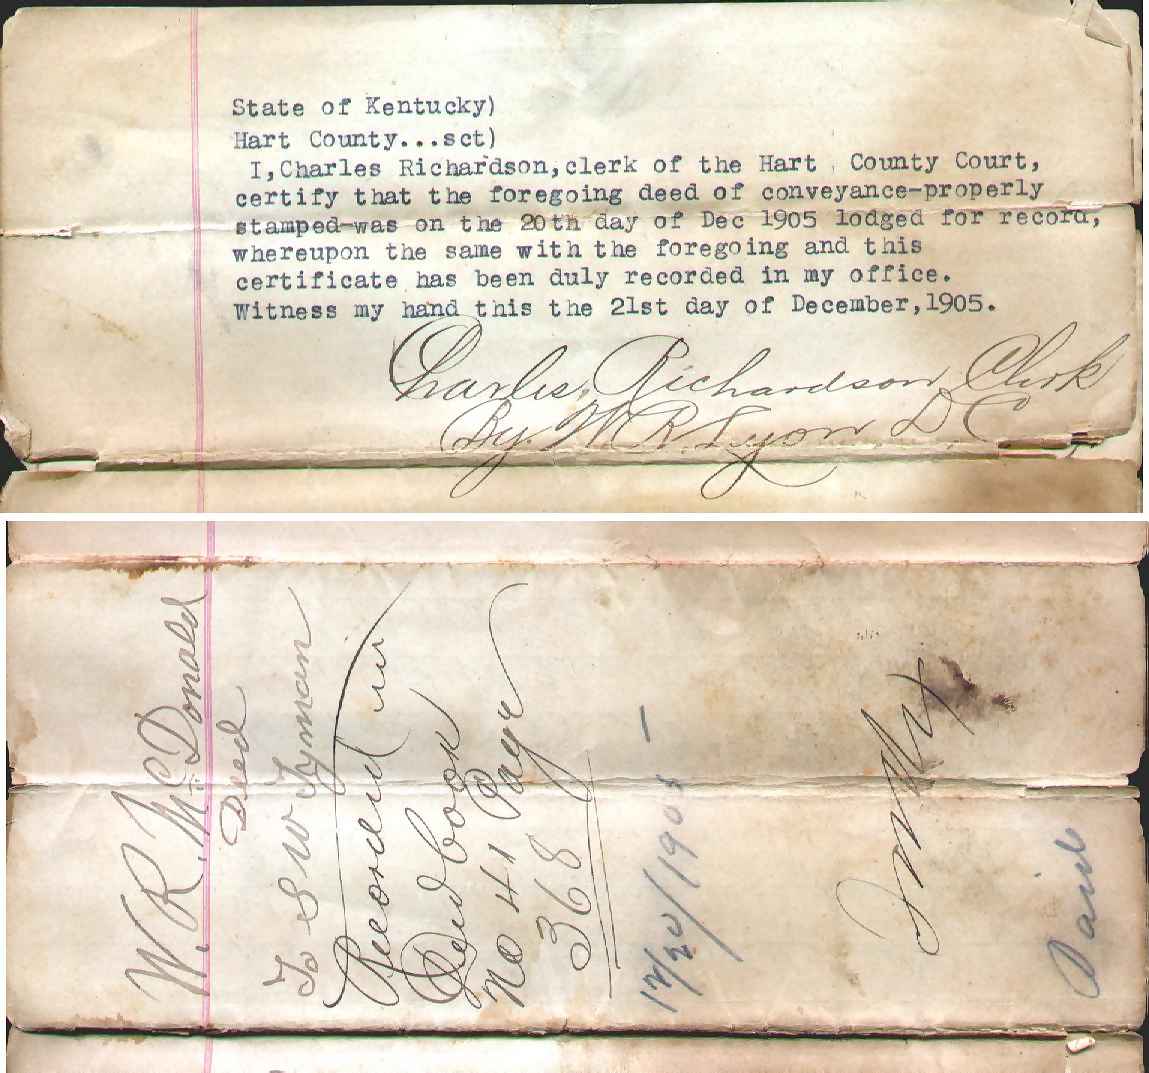 State of Kentucky)
Hart County...sct)
I,Charles Richardson,clerk of the Hart County Court,
certify that the foregoing deed of conveyance-properly
stamped-was on the 20th day of Dec 1905 lodged for record,
whereupon the same with the foregoing and this
certificate has been duly recorded in my office.
Witness my hand this the 21st day of December,1905.
Charles Richardson Clerk
By. W R Lyon D C
W. R. McDonald
Deed
To S W Lyman
Recorded in
Deed book
No 41 Page
368
12/20/1905 —
Paid